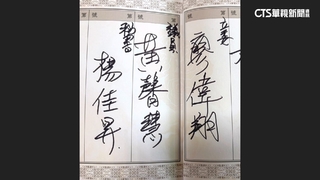 CTS華視新聞
立委
廖偉翔
議員
黃馨慧
秘書
楊佳昇